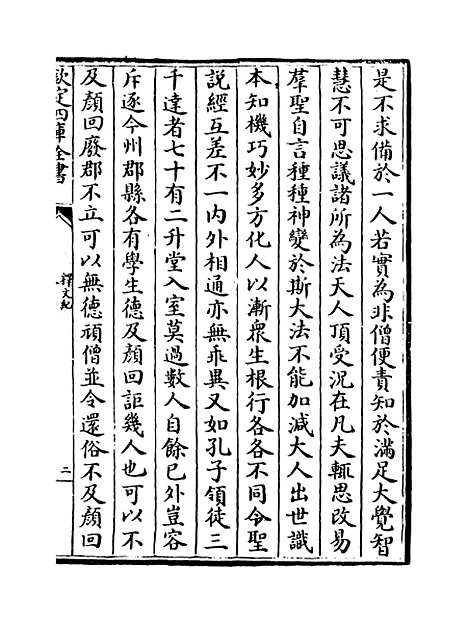 是不求備於一人若實為非僧便責知於滿足大覺智
慧不可思議諸所為法天人頂受況在凡夫輒思改易
羣聖自言種種神變於斯大法不能加減大人出世識
本知機巧妙多方化人以漸衆生根行各各不同令聖
説經互差不一内外相通亦無乖異又如孔子領徒三
千達者七十有二升堂入室莫過數人自餘已外豈容
斥逐今州郡縣各有學生德及顔回詎幾人也可以不
及顔回廢郡不立可以無德頑僧並令還俗不及顔回
欽定四庫全書
釋文紀
二